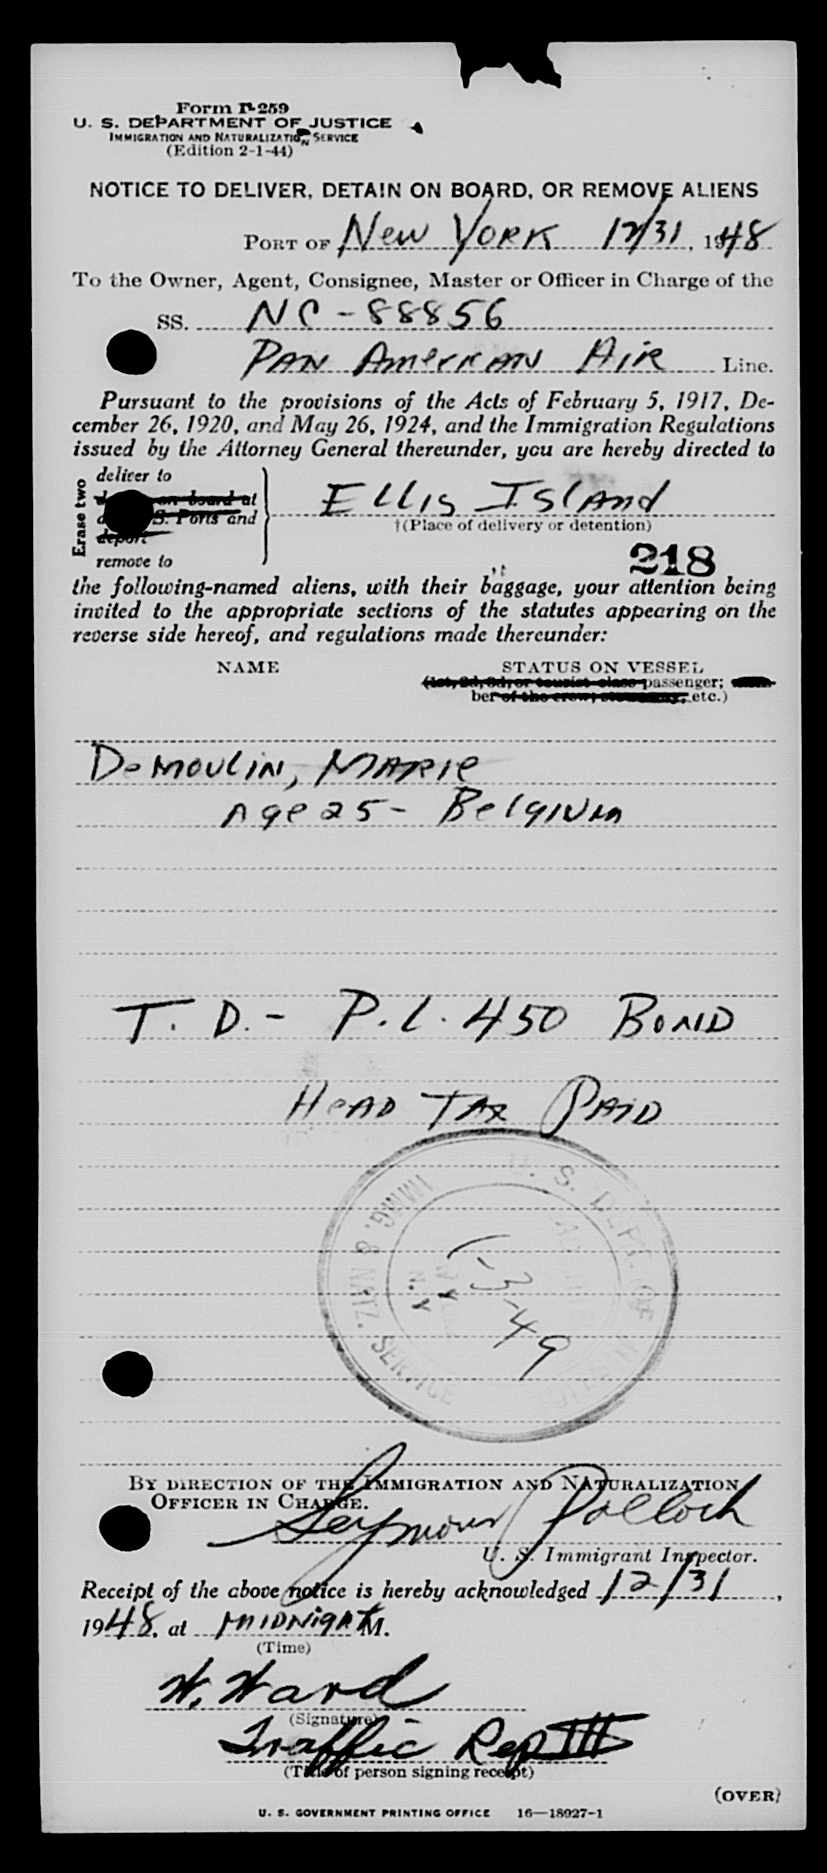 Form I-259
U. S. DEPARTMENT OF JUSTICE
IMMIGRATION AND NATURALIZATION SERVICE
(Edition 2-1-44)
NOTICE TO DELIVER, DETAIN ON BOARD, OR REMOVE ALIENS
PORT OF New York 12/31, 1948
To the Owner, Agent, Consignee, Master or Officer in Charge of the
SS. NC-88856
Pan American Air Line.
Pursuant to the provisions of the Acts of February 5, 1917, De-
cember 26, 1920, and May 26, 1924, and the Immigration Regulations
issued by the Attorney General thereunder, you are hereby directed to
Erase two
deliver to
on board at
S. Ports and
deport
remove to
Ellis Island
†(Place of delivery or detention)
218
the following-named aliens, with their baggage, your attention being
invited to the appropriate sections of the statutes appearing on the
reverse side hereof, and regulations made thereunder:
NAME STATUS ON VESSEL
(1st, 2d, 3d, or tourist class passenger;
ber of the crew, etc.)
Demoulin, Marie
Age 25 - Belgium
T. D. - P.L. 450 Bond
Head Tax Paid
U. S. DEPT. OF JUSTICE
IMMIG. & NATZ. SERVICE
N.Y.
1-3-49
BY DIRECTION OF THE IMMIGRATION AND NATURALIZATION
OFFICER IN CHARGE.
Seymour Pollock
U. S. Immigrant Inspector.
Receipt of the above notice is hereby acknowledged 12/31,
1948, at midnight M.
(Time)
W. Ward
(Signature)
Traffic Rep III
(Title of person signing receipt)
(OVER)
U. S. GOVERNMENT PRINTING OFFICE 16—18927-1